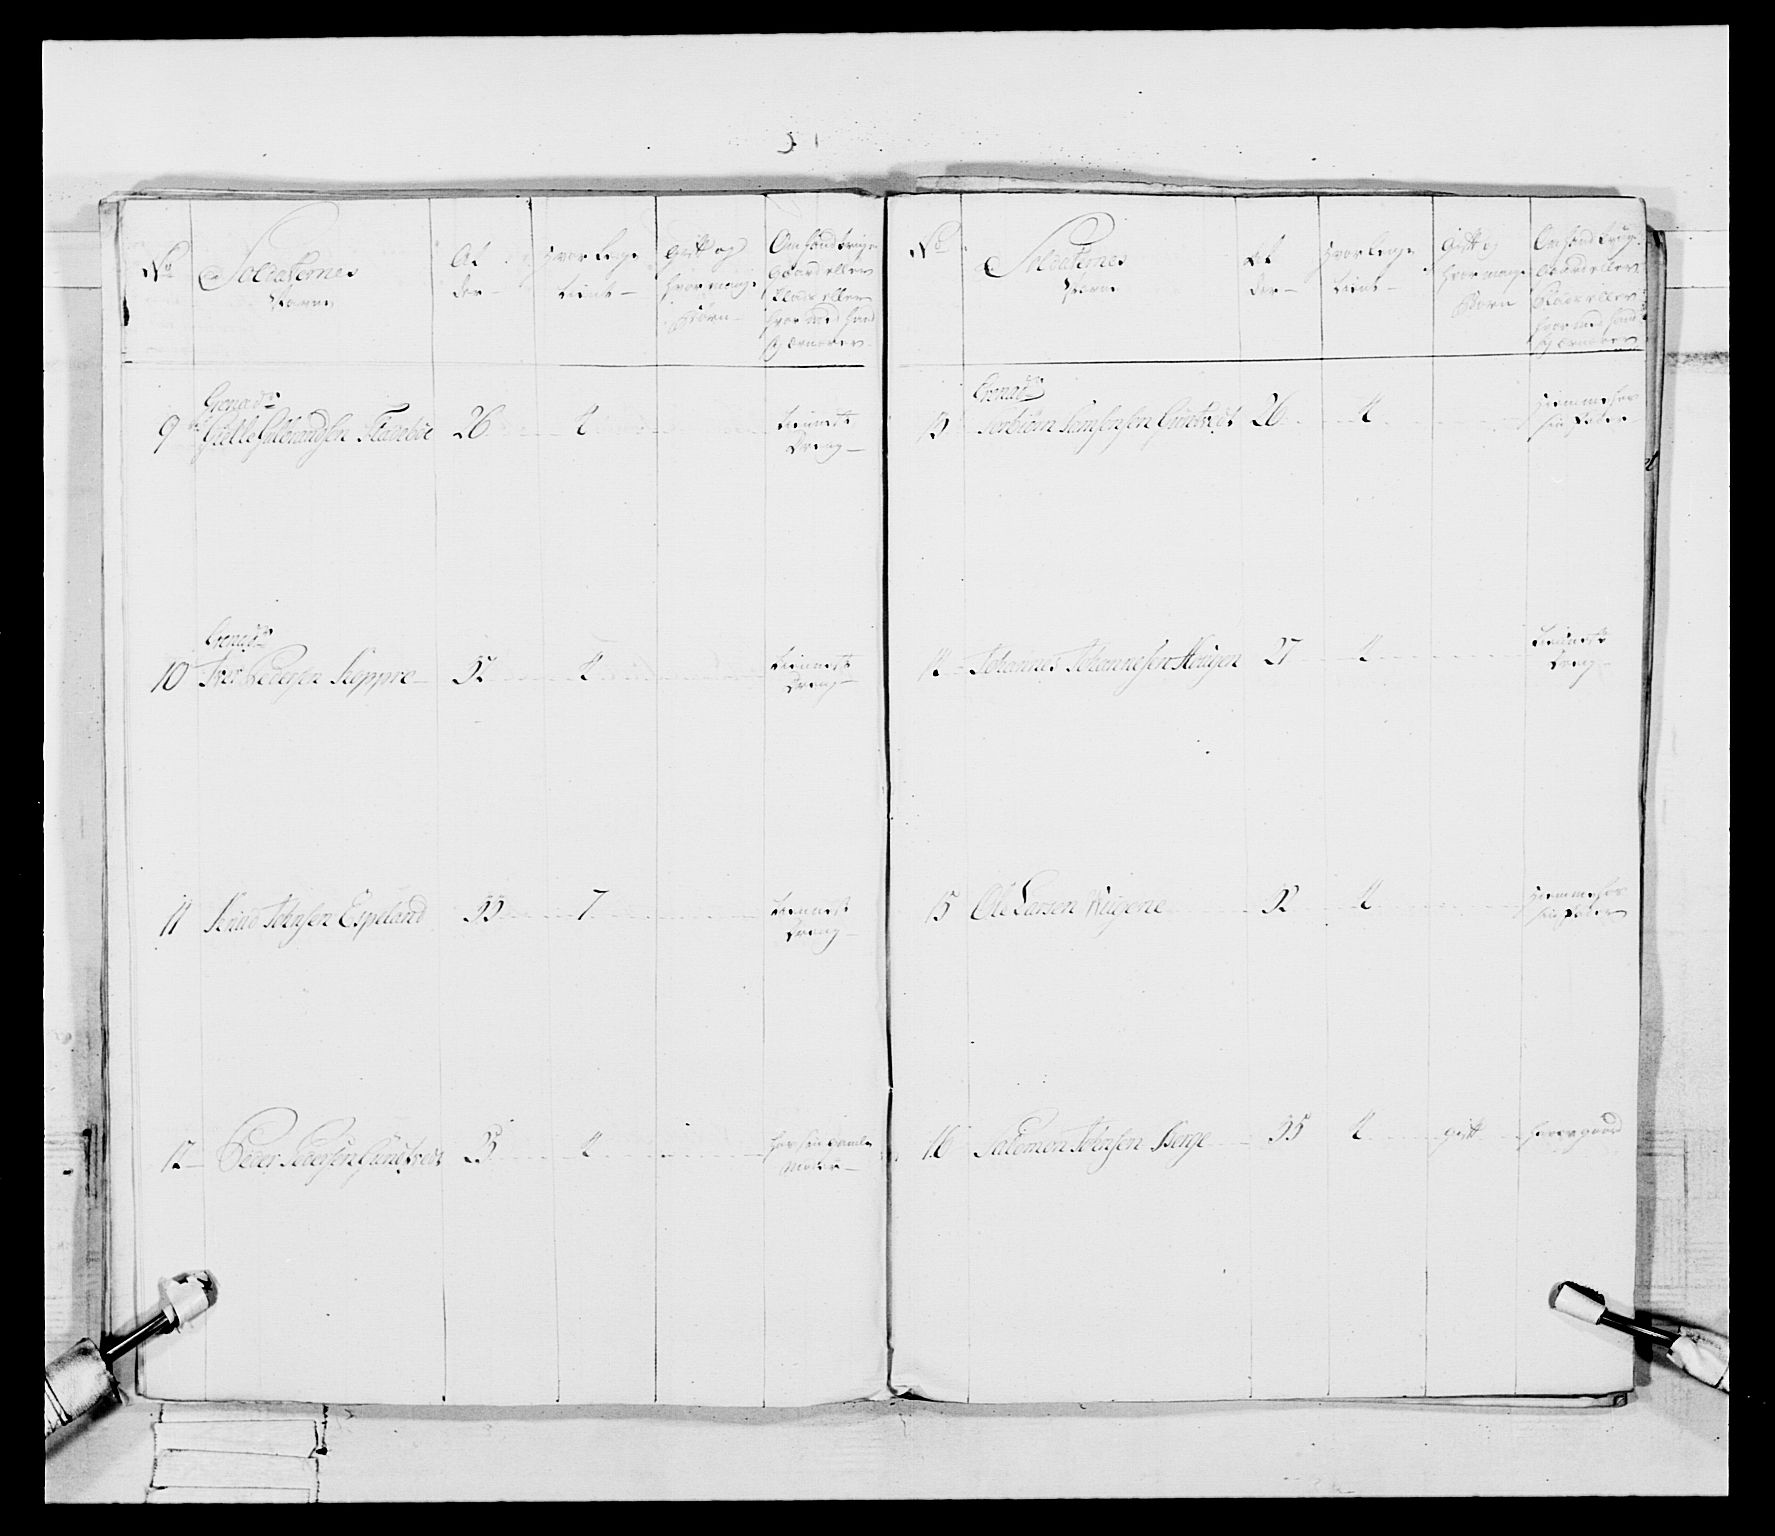 No
Soldaternes
Navne
Al
der —
Hvor lenge
tient —
Gift og
hvor mange
Børn —
Om hand bruger
Gaard eller
Plads eller
hvor med hand
sig ernærer
9
Grenad
Gulbrandsen
26
4
tienneste
Dreng —
10
Grenad
Pedersen Skeppre
4
tienneste
Dreng —
11
Knud Johnsen Espeland
33
7
tienneste
Dreng —
12
Peder Pedersen
4
hos sin gamle
Moder —
No
Soldaternes
Navne
Al
der —
Hvor lenge
tient —
Gift og
hvor mange
Børn
Om hand bruger
Gaard eller
Plads eller
hvor med hand
sig ernærer
13
Grenad
Torbiørn Samsonsen
26
4
Hiemme hos
sin Fader
14
Johannes Johannesen Haugen
27
4
tienneste
Dreng
15
Ole Larsen
4
Hiemme hos
sin Fader
16
Salomon Johnsen Berge
35
4
gift
haver gaard